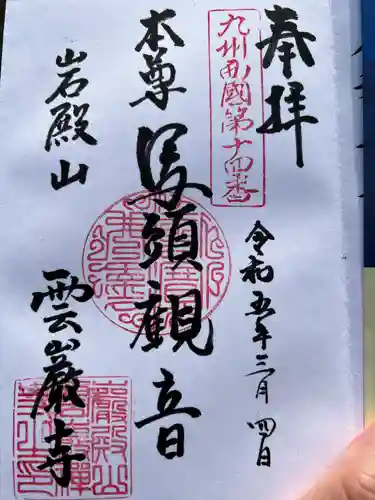 奉拝
九州西國第十四番
令和五年三月四日
本尊
馬頭観音
岩殿山
雲巌寺